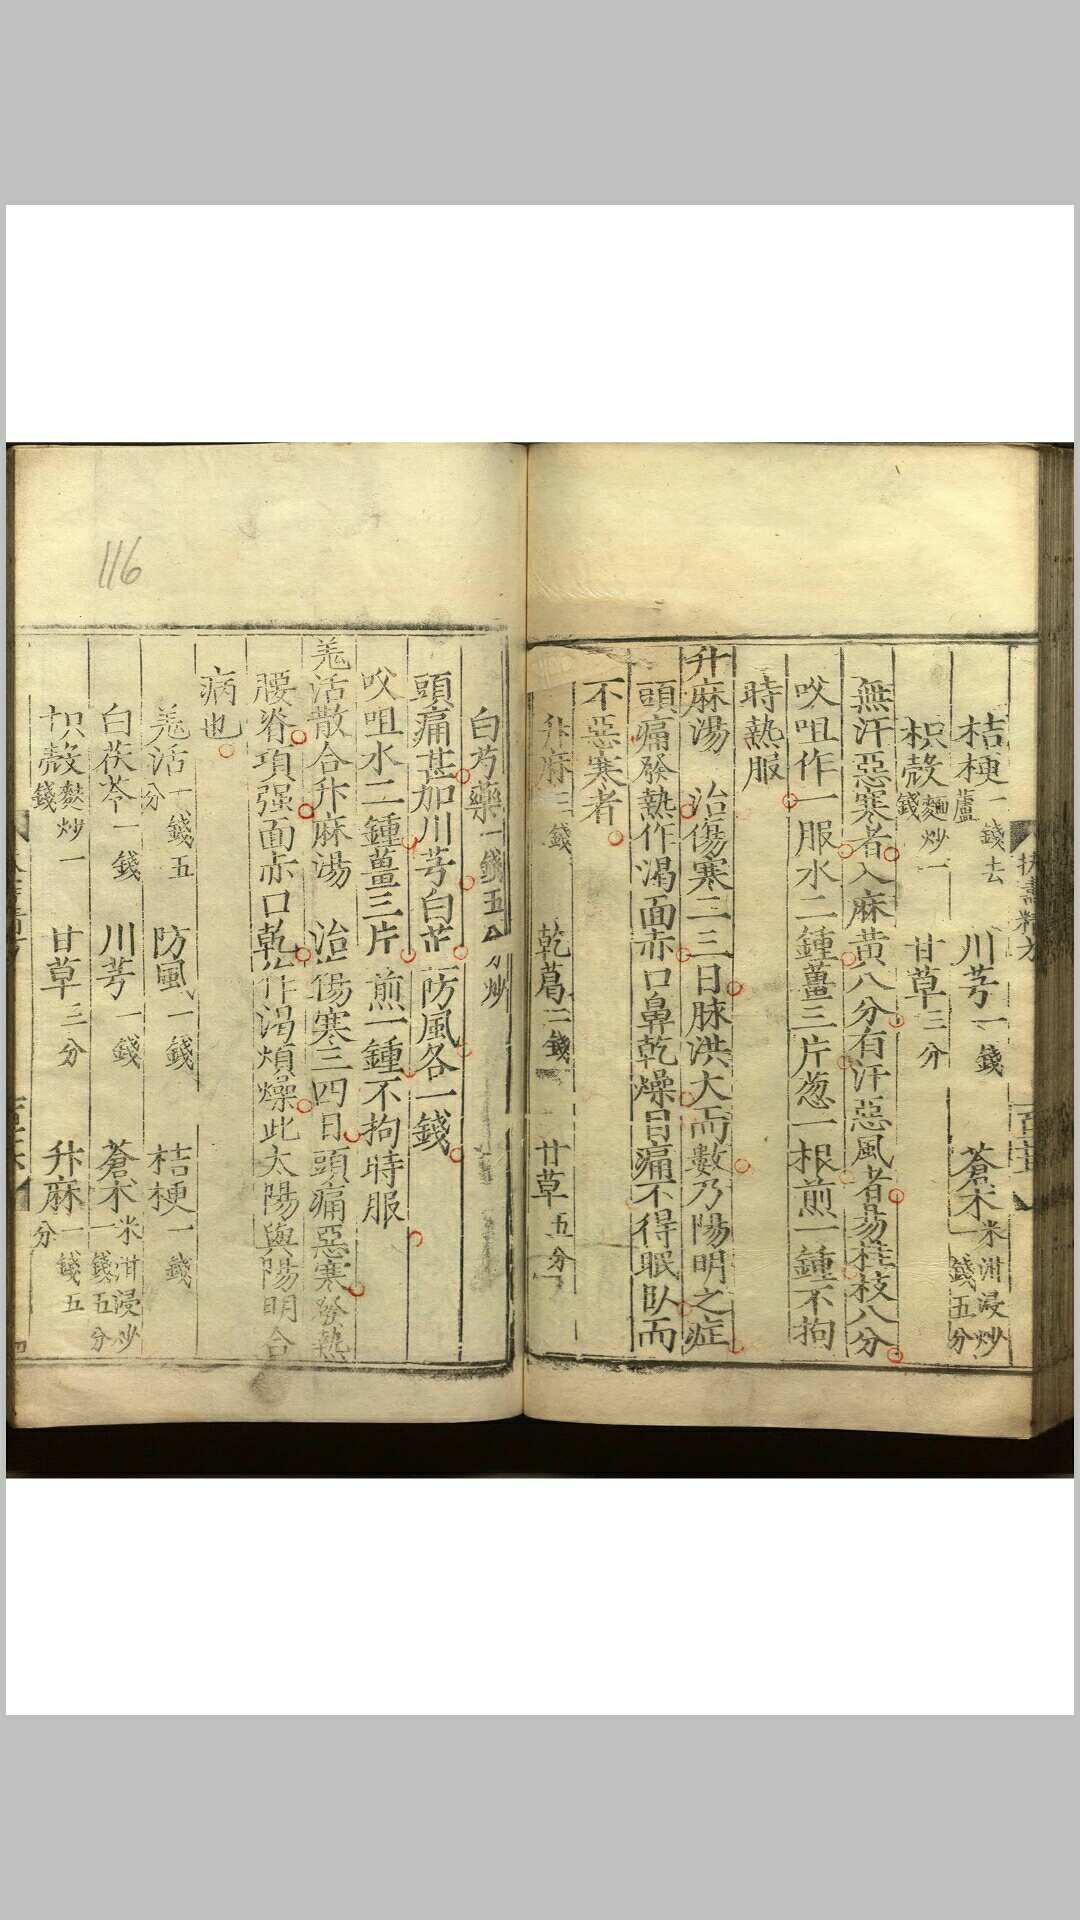 桔梗一錢去蘆 川芎一錢 蒼朮米泔浸炒一錢五分
枳殼麵炒一錢 甘草三分
無汗惡寒者入麻黃八分有汗惡風者昜桂枝八分
㕮咀作一服水二鍾薑三片葱一根煎一鍾不拘
時熱服
升麻湯 治傷寒二三日脉洪大而數乃陽明之症
頭痛發熱作渴面赤口鼻乾燥目痛不得眠臥而
不惡寒者
升麻三錢 乾葛二錢 甘草五分
白芍藥一錢五分炒
頭痛甚加川芎白芷防風各一錢
㕮咀水二鍾薑三片煎一鍾不拘時服
羗活散合升麻湯 治傷寒三四日頭痛惡寒發熱
腰脊項强面赤口乾作渴煩燥此太陽與陽明合
病也
羗活一錢五分 防風一錢 桔梗一錢
白茯苓一錢 川芎一錢 蒼朮米泔浸炒一錢五分
枳殼麩炒一錢 甘草三分 升麻一錢五分
116